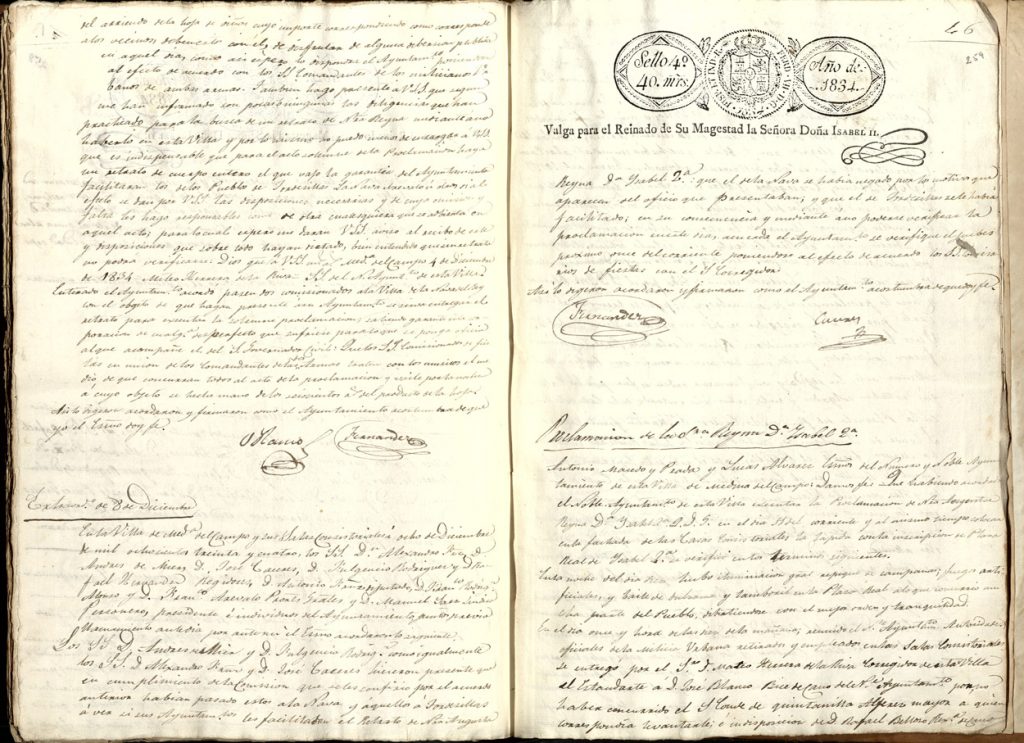 del arriendo de la hoja de viñas cuyo importe correspondiendo como corresponde
a los vecinos
en aquel dia como asi espero lo dispondrá el Ayuntamto poniendose
al efecto de acuerdo con los SS. Comandantes de los milicianos Ur-
banos de ambas armas. Tambien hago presente a V.SS. que segun
me han informado son poco las diligencias que han
practicado para la busca de un retrato de Nra Reyna mediante a no
haberlo en esta Villa y por lo mismo no puedo menos de encargar a V.SS.
que es indispensable que para el acto solemne de la Proclamacion haya
un retrato de cuerpo entero el que vajo la garantia del Ayuntamiento
facilitaran los de los Pueblos de Tordesillas La Nava
efecto se dan por V.SS. las disposiciones necesarias y de cuya omision y
falta les hago responsables como de otras cualesquiera que se adviertan en
aquel acto; para lo cual espero me daran V.SS. aviso al recibo de este
y disposiciones que sobre todo hayan tomado, bien entendido que sin retrato
no podra verificarse. Dios gue a V.SS. ms as Meda del Campo 4 de diciembre
de 1834. Mateo Herrera de la Riva. SS. del Ne Ayuntto de esta Villa.
Enterado el Ayuntamto acordó pasen dos comisionados a la Villa de la Nava del Rey
con el objeto de que hagan presente a su Ayuntamto se sirva entregar el
retrato para la solemne proclamacion saliendo garante su cor-
poracion de cualqr desperfecto que sufriere para lo que se ponga oficio
al que acompañe el del Sr Governador Civil: Que los SS. Comisionados de fies-
tas en union de los Comandantes de las dos armas traten con los musicos el me-
dio de que concurran todos al acto de la proclamacion
á cuyo objeto se hecha mano de los doscientos rs del producto de la hoja.
Asi lo digeron acordaron y firmaron como el Ayuntamiento acostumbra de que
yo el Essno doy fe.
Olanio Fernandez
Extraordo de 8 Diciembre
En la Villa de Meda del Campo y sus Salas Consistoriales á ocho de Diciembre
de mil ochocientos treinta y cuatro, los SS. Dn Alexandro Piro, D.
Andres de Mier, D. José Caceres, D. Fulgencio Rodriguez y D. Ra-
fael Hernandez Regidores, D. Antonio
Alonso y D. Franco Acevalo
Personero, presidente é individuos del Ayuntamiento, junto precio
llamamiento ante diem por ante mi el Essno acordaron lo siguiente.
Los SS. D. Andres de Mier y D. Fulgencio Rodrigz como igualmente
los SS. D. Alexandro y D. José Caceres hicieron presente que
en cumplimiento de la Comision que se les confirio por el acuerdo
anterior habian pasado estos a la Nava, y aquellos a Tordesillas
á ver si sus Ayuntamtos les facilitaban el Retrato de Nra Augusta
46
259
Sello 4º
40. mrs.
Año de
1834.
Valga para el Reinado de Su Magestad la Señora Doña ISABEL II.
Reyna Da Ysabel 2.a: que el de la Nava se habia negado por los motivos que
aparecen del oficio que presentaban; y que el de Tordesillas se le habia
facilitado; en su consecuencia y mediante á no poderse verificar la
proclamacion en este dia, acuerda el Ayuntamto se verifique el jueves
proximo once del corriente poniendose al efecto de acuerdo los SS. Comisa-
rios de fiestas con el Sr Corregidor.
Asi lo digeron acordaron y firmaron como el Ayuntamto acostumbra de que doy fe.
Fernandez
Caceres
Proclamacion de la Sra Reyna Da Ysabel 2a.
Antonio Macedo y Prada y Lucas Alvarez Essnos del Numero y Noble Ayun-
tamiento de esta Villa de Medina del Campo: Damos fe: Que habiendo acordado
el Noble Ayuntamto de esta Villa executar la Proclamacion de Nra Augusta
Reyna Da Ysabel 2a Q.D.G. en el dia 11 del corriente y al mismo tiempo colocar
en la fachada de las Casas Consistoriales la Lapida con la inscripcion de Plaza
Real de Ysabel 2a, se verificó en los terminos siguientes.
En la noche del dia diez hubo iluminacion gral repique de campanas, fuegos arti-
ficiales, y baile de dulzaina y tamboril en la Plaza Real al que concurrio mu-
cha parte del Pueblo, divirtiendose con el mejor orden y tranquilidad.
En el dia once y hora de las diez de la mañana, reunido el Ne Ayuntamto, Autoridades
oficiales de la Milicia Urbana retirados y empleados en las Salas Consistoriales
se entregó por el Sr D. Mateo Herrera de la Riva Corregidor de esta Villa
el Estandarte á D. José Blanco Rice de Cano de Ne Ayuntamto por no
haber concurrido el Sr Conde de Quintanilla Alferez mayor a quien
correspondia levantarle; é indisposicion de D. Rafael Belloso